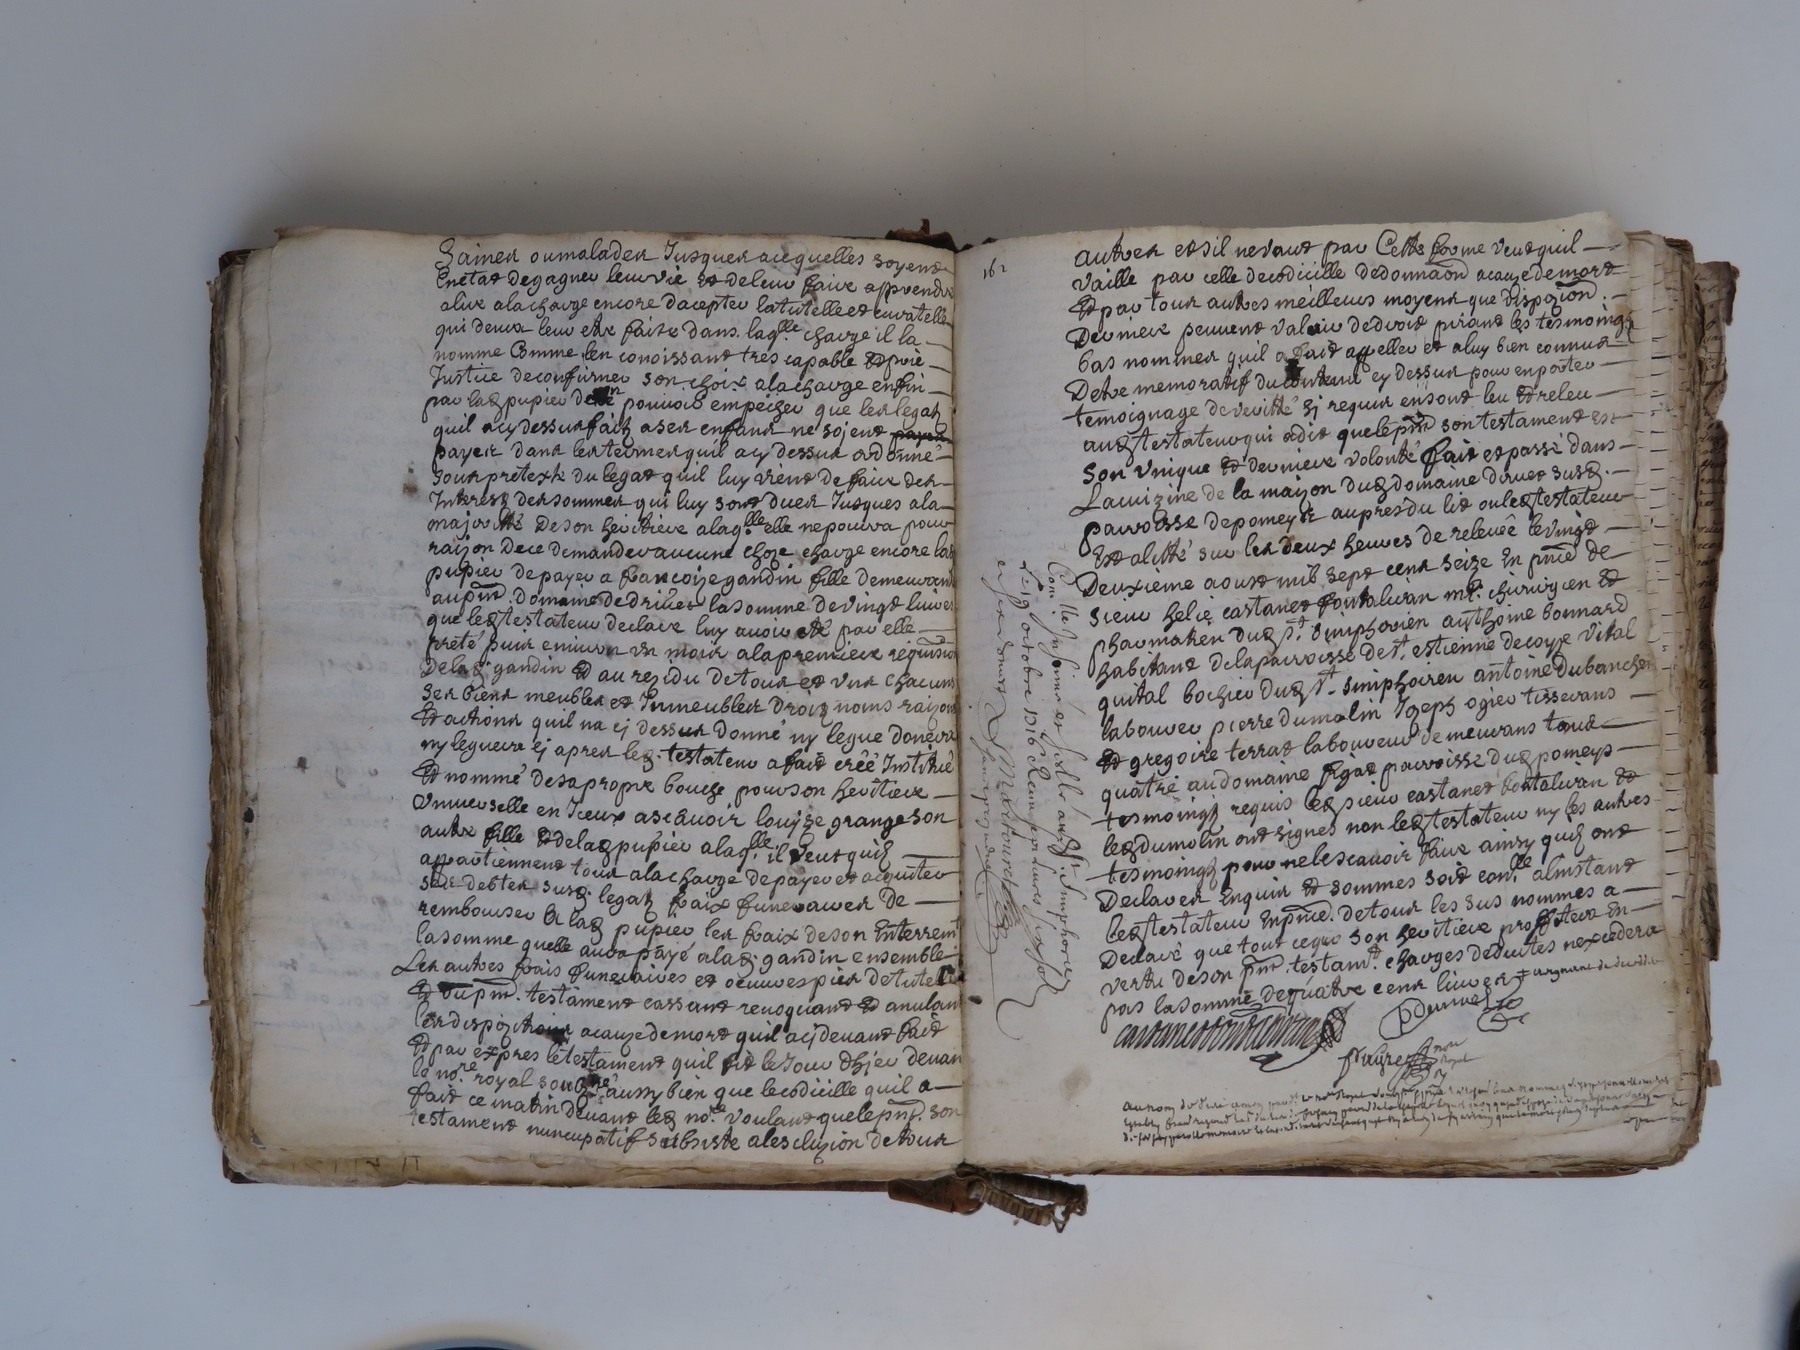 Saines ou malades Jusques acequelles soyent
Enetat degagner leur vie et deleur faire apprendre
alire alacharge encore dacepter latutelle et curatelle
qui devra leur etre faite dans laq.lle charge il la
nomme Comme len conoissant tres capable et prie
Justice deconfirmer son choix alacharge enfin
par lad pupier de pouvoir empecher que les legatz
quil acy dessus faitz ases enfans ne sojent
payez dans lestermes quil acy dessus ordonné
Sous pretexte du legat quil luy vient de faire des
Interestz dessommes qui luy sont dues Jusques ala
majorité De son heritiere alaq.lle elle nepourra pour
raizon Dece demander aucune choze charge encore lad
pupier depayer a francoize gandin fille demeurant
aupnt. Domaine dedrivet lasomme devingt livres
que led testateur declare luy avoir eté par elle
preté puis environ un mois alapremiere requisition
Delad. gandin et au rezidu detous et uns chacuns
ses biens meubles et Inmeubles droitz noms raizons
et actions quil na cj dessus donné ny legue donera
ny leguera cj apres led. testateur afait créé Institué
et nommé desapropre bouche pourson heritiere
Universelle en Iceux ascavoir louyze grange son
autre fille et delad pupier alaq.lle il veut quilz
appartiennent tous alacharge depayer et acquiter
ses debtes susd. legatz fraix funeraires de
rembourser A lad pupier les fraix deson Enterrem.t
lasomme quelle aura payé alad. gandin ensemble
Les autres frais funeraires et oeuvres pies detutelle
et dupnt. testament cassant revoquant et anulant
les dispozitions acauzedemort quil acj devant fait
et par expres letestament quil fit le Jour dhjer devant
le no.re royal sousigné aussy bien que lecodicille quil a
fait ce matin devant led no.re voulant que lepnt. son
testament nuncupatif subsiste alesclusion detous
162
autres et sil nevaut par Cette forme veut quil
vaille par celle decodicille dedonnaon acauzedemort
et par tous autres meilleurs moyens que dispozion.
Derniere peuvent valoir dedroit priant les tesmoings
bas nommes quil a fait appeller et aluy bien connus
Detre memoratif du contenu cy dessus pour enporter
temoignage deverité sj requis ensont leu et releu
aud testateur qui adit que lepnt son testament est
Son Unique et derniere volonté fait et passé dans
Lacuizine de la maizon dud domaine drivet susd.
parroisse depomeys aupres du lit ou led testateur
Est alitté sur les deux heures de relevée levingt
Deuxieme aoust mil sept cent seize En pnce de
sieur helie castanet fontalivan m.e chirurgien et
pharmatien dud s.t simphorien anthoine bonnard
habitant delaparroisse de s.t estienne decoyse vital
guital bochier dud s.t simphorien antoine dubanchet
laboureur pierre dumolin Jozeph ogier tisserans
et gregoire terrat laboureur demeurans tous
quatre audomaine figat parroisse dud pomeys
tesmoingz requis led sieur castanet fontalivan et
led dumolin ont signes non led testateur ny les autres
tesmoingz pour nele scavoir faire ainsy quilz ont
Declarer Enquis et sommes soit con.lle alinstant
led testateur Enpnce. detous les sus nommes a
Declaré que tout ceque son heritiere proffitera En
vertu deson pnt. testamt. charges deduites nexcedera
pas lasomme dequatre cent livres
castanet fontalivan
P Dumolin
Con.lle Insinué et scellé aud s.t simphorien
Le 19 octobre 1716 Receu